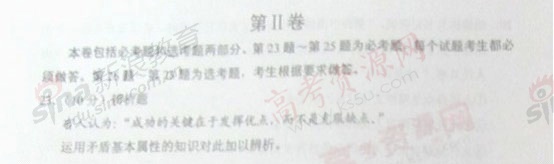 第Ⅱ卷
本卷包括必考题和选考题两部分。第23题~第25题为必考题，每个试题考生都必
须做答。第26题~第 题为选考题，考生根据要求做答。
23.（10分）辨析题
有人认为：“成功的关键在于发挥优点，而不是克服缺点。”
运用矛盾基本属性的知识对此加以辨析。
sina 新浪教育
高考资源网
ks5u.com
sina 新浪教育
高考资源网